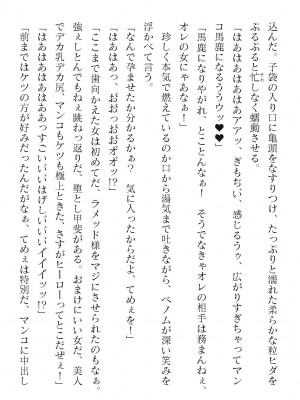 込んだ。子袋の入り口に亀頭をなすりつけ、たっぷりと濡れた柔らかな粒ヒダを
ぷるぷると忙しなく蠕動させる。
「はあはあはあはあアアッ、ぎもぢいい、感じるうゥ、広がりすぎちゃってマン
コ馬鹿になるうウゥッ♥♥」
「馬鹿になりやがれ、とことんなぁ! そうでなきゃオレの相手は務まんねぇ、
オレの女にゃあなぁ!」
珍しく本気で燃えているのか口から湯気まで吐きながら、ベノムが深い笑みを
浮かべて言う。
「なんで孕ませたか分かるかぁ? 気に入ったからだよ、てめぇを!」
「はあはぁっ、おおっおおオオッ!?」
「ここまで歯向かえた女は初めてだ、ラメッド様をマジにさせられたのもなぁ。
強えしとんでもねぇ跳ねっ返りだ、堕とし甲斐がある。おまけにいい女だ、美人
でデカ乳デカ尻、マンコもケツも極上ときた、さすがヒーローってとこだぜぇ!」
「はあはあはああっすごいいいはげしいいイイイッッ!?」
「前まではケツの方が好みだったんだがなぁ、てめぇは特別だ、マンコに中出し